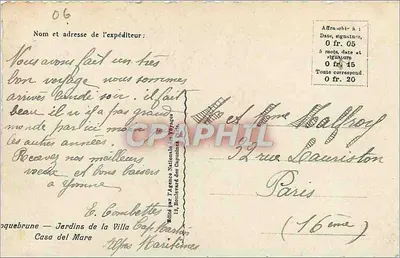 06
Nom et adresse de l'expéditeur :
Nous avons fait un très
bon voyage nous sommes
arrivés lundi soir. il fait
beau il n'y a pas grand
monde par ici
les autres années.
Recevez nos meilleurs
et bons baisers
à Yvonne
E. Combettes
Cap Martin
Alpes Maritimes
oquebrune — Jardins de la Villa
Casa del Mare
Edité par l'Agence Nationale
12, Boulevard des Capucines, Paris
CPARPHIL
Affranchir à :
Date, signature,
0 fr. 05
5 mots, date et
signature
0 fr. 15
Texte correspond.
0 fr. 20
et Mme Malfroy
32 rue Lauriston
Paris
(16ème)